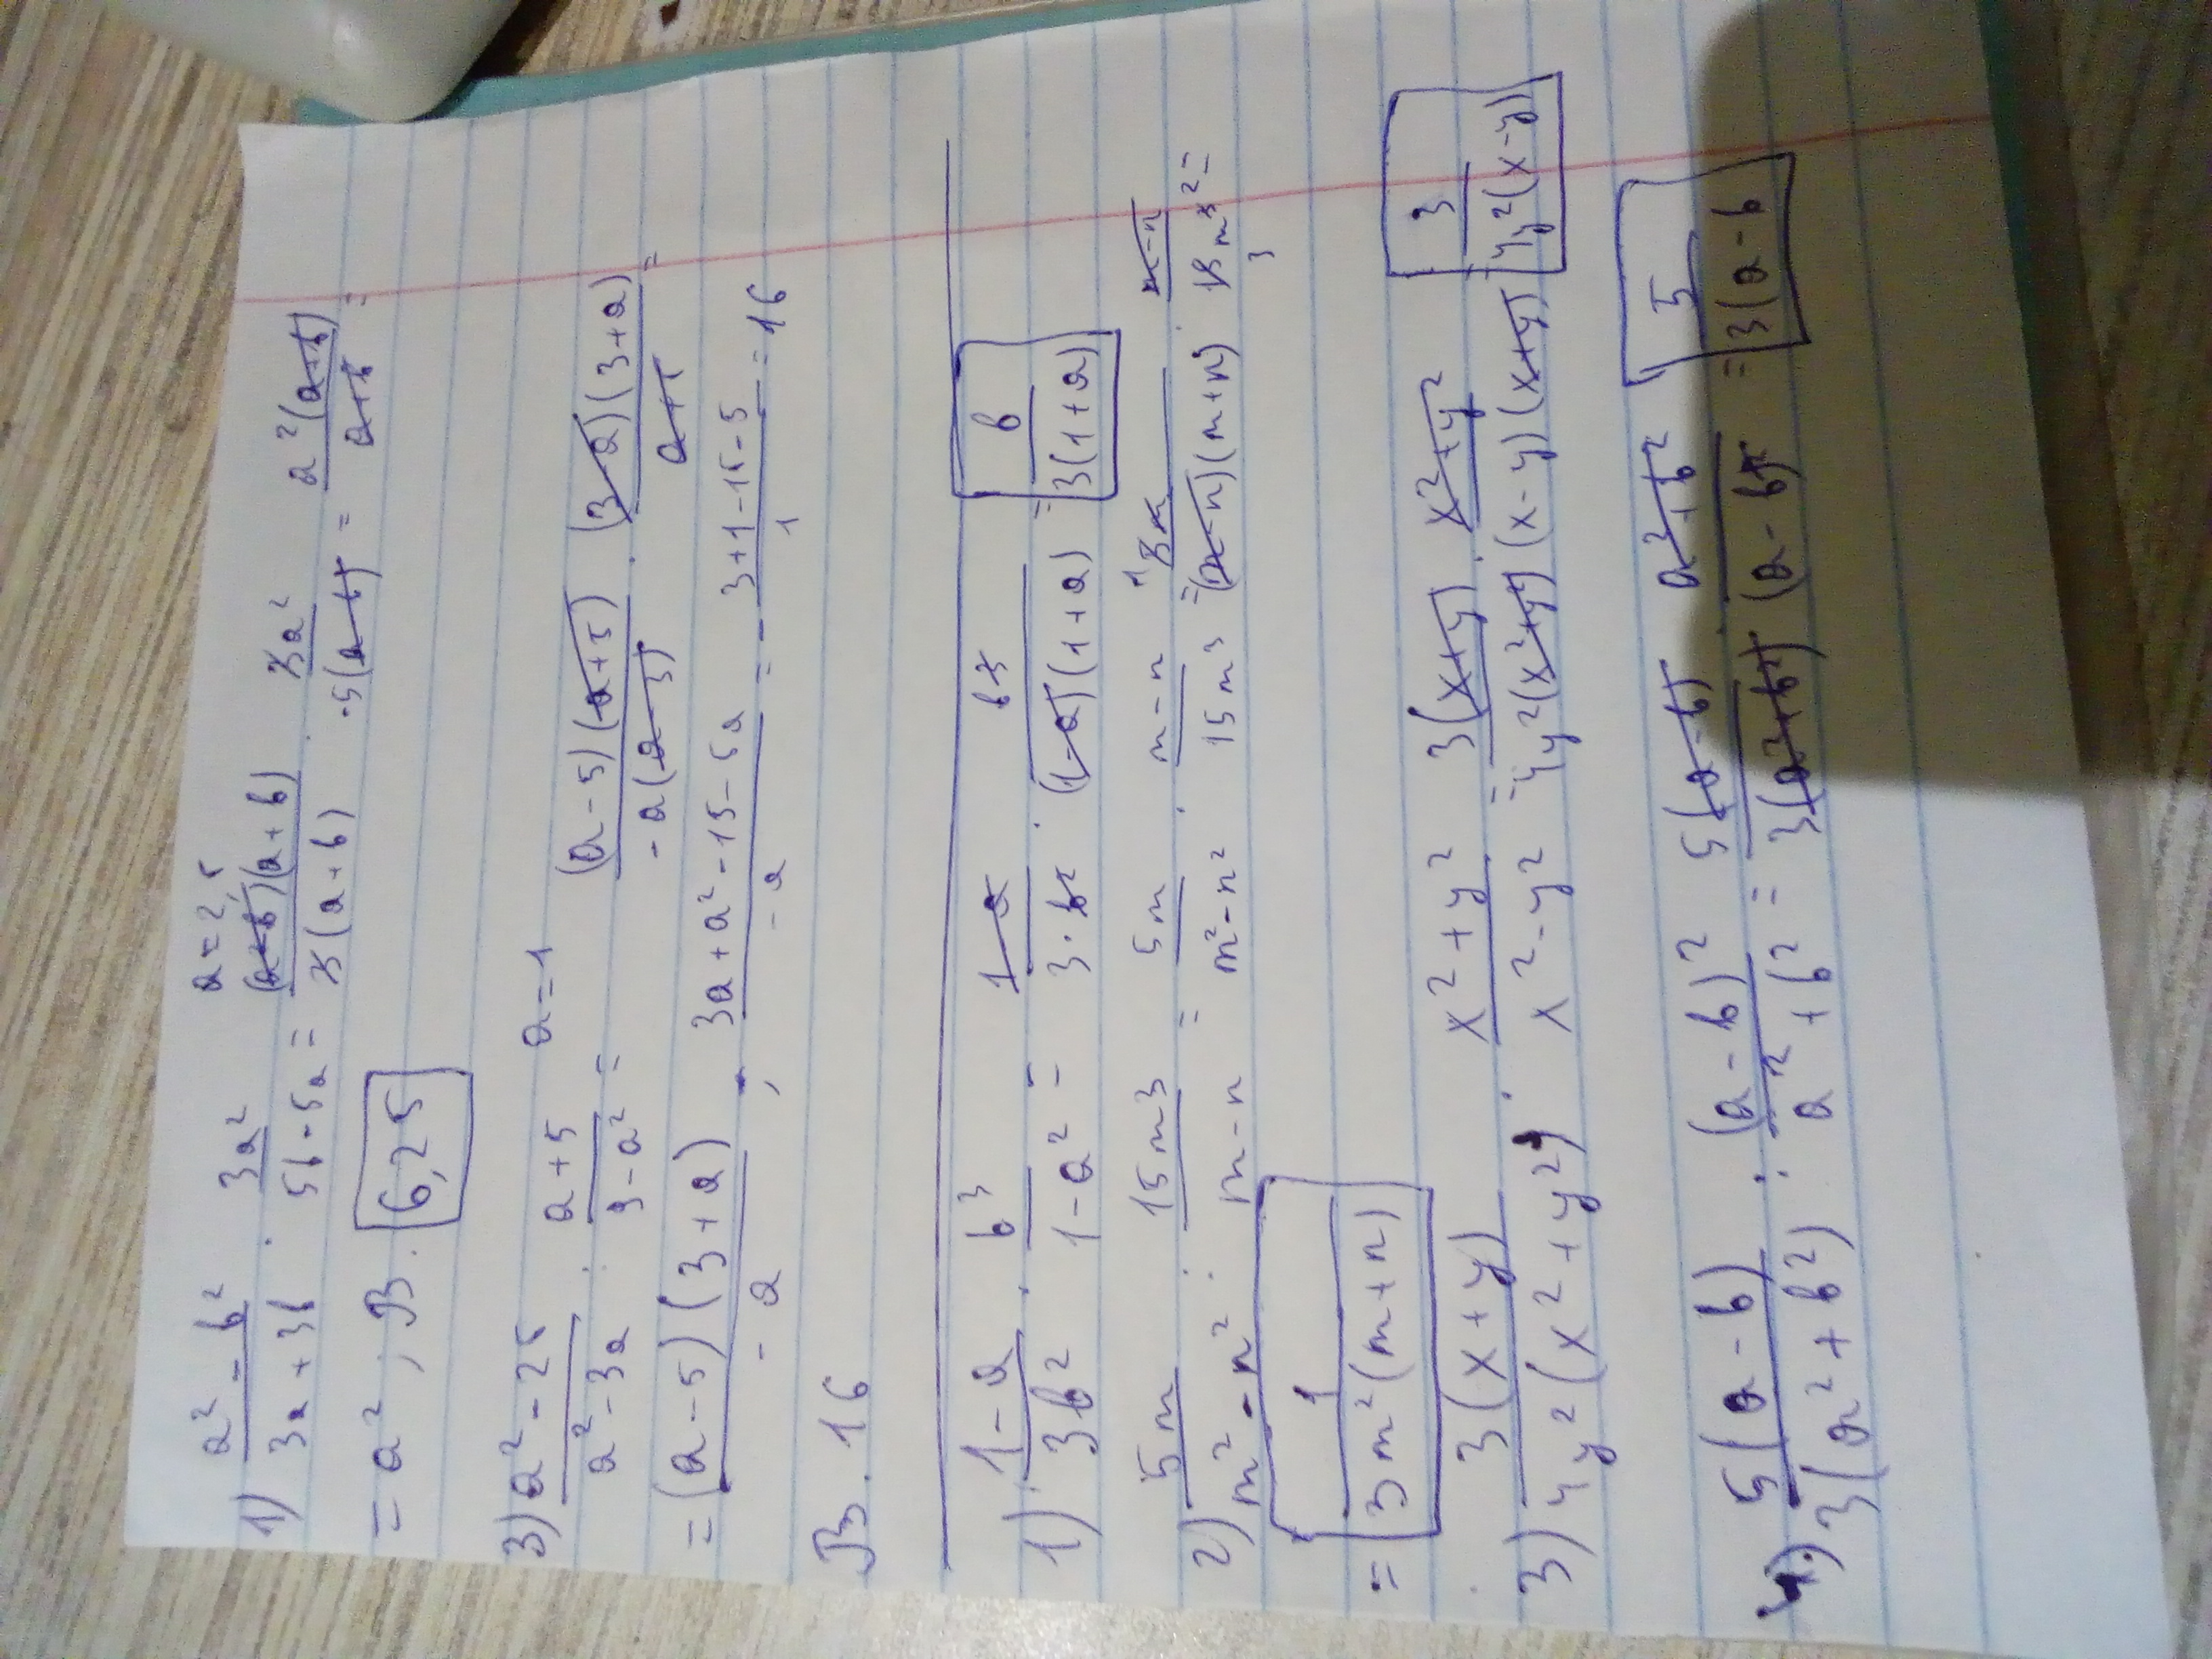 a = 2,5
1) (a² - b²)/(3a + 3b) · 3a²/(5b - 5a) = (a-b)(a+b)/3(a+b) · 3a²/-5(a-b) = a²(a+b)/(a+b) =
= a²; В. 6,25
a = 1
3) (a² - 25)/(a² - 3a) : (a + 5)/(9 - a²) = (a - 5)(a + 5)/-a(a - 3) · (3-a)(3+a)/(a+5) =
= (a - 5)(3 + a)/-a ; (3a + a² - 15 - 5a)/-a = - (3 + 1 - 15 - 5)/1 = 16
В. 16
1) (1 - a)/3b² · b³/(1 - a²) = (1-a)/(3·b²) · b³/(1-a)(1+a) = b/3(1+a)
2) 5m/(m² - n²) : 15m³/(m - n) = 5m/(m² - n²) · (m - n)/15m³ = 5m/(m-n)(m+n) · (m-n)/15m³ =
= 1/3m²(m+n)
3) 3(x+y)/4y²(x² + y²) : (x² + y²)/(x² - y²) = 3(x+y)/4y²(x²+y²) · (x²+y²)/(x-y)(x+y) = 3/4y²(x-y)
4) 5(a - b)/3(a² + b²) : (a - b)²/(a² + b²) = 5(a-b)/3(a²+b²) · (a²+b²)/(a - b)² = 5/3(a-b